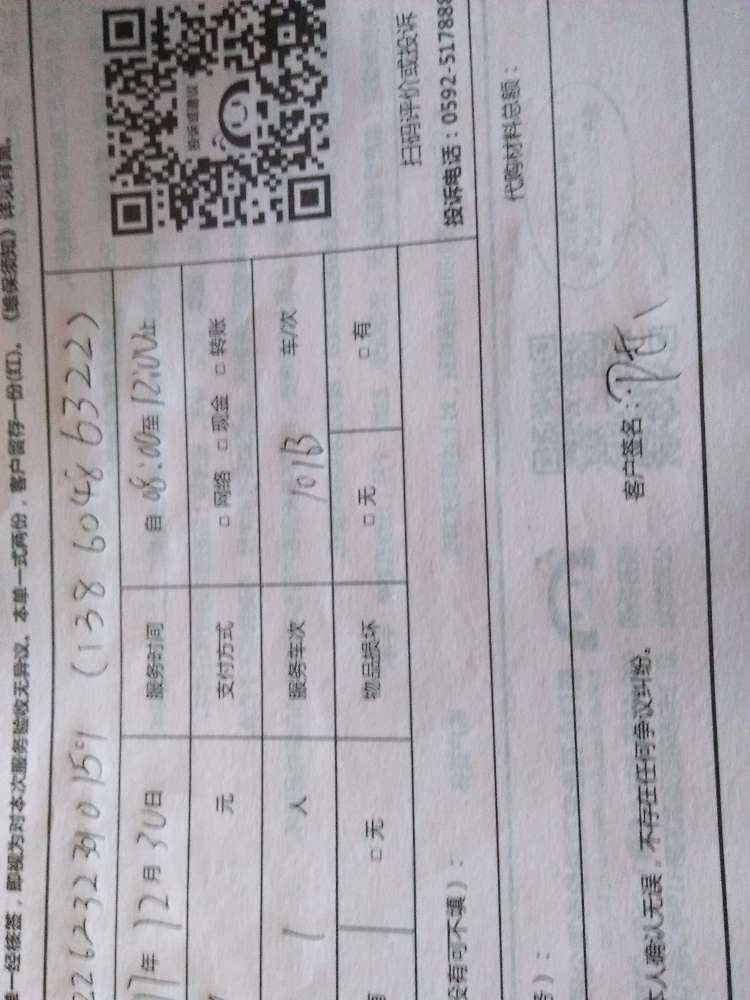 一经核签，即视为对本次服务验收无异议。本单一式两份，客户留存一份(红)。《维保须知》详见背面。
2262323910159 (138 6048 6322)
17年 12月 30日 服务时间 自 08:00至 12:00止
元 支付方式 □ 网络 □ 现金 □ 转账
1 人 服务车次 101B 车/次
□ 无 物品损坏 □ 无 □ 有
投诉或建议
扫码评价或投诉
投诉电话：0592-517888
没有可不填)：
代购材料总额：
)：
人确认无误，不存在任何争议纠纷。 客户签名：